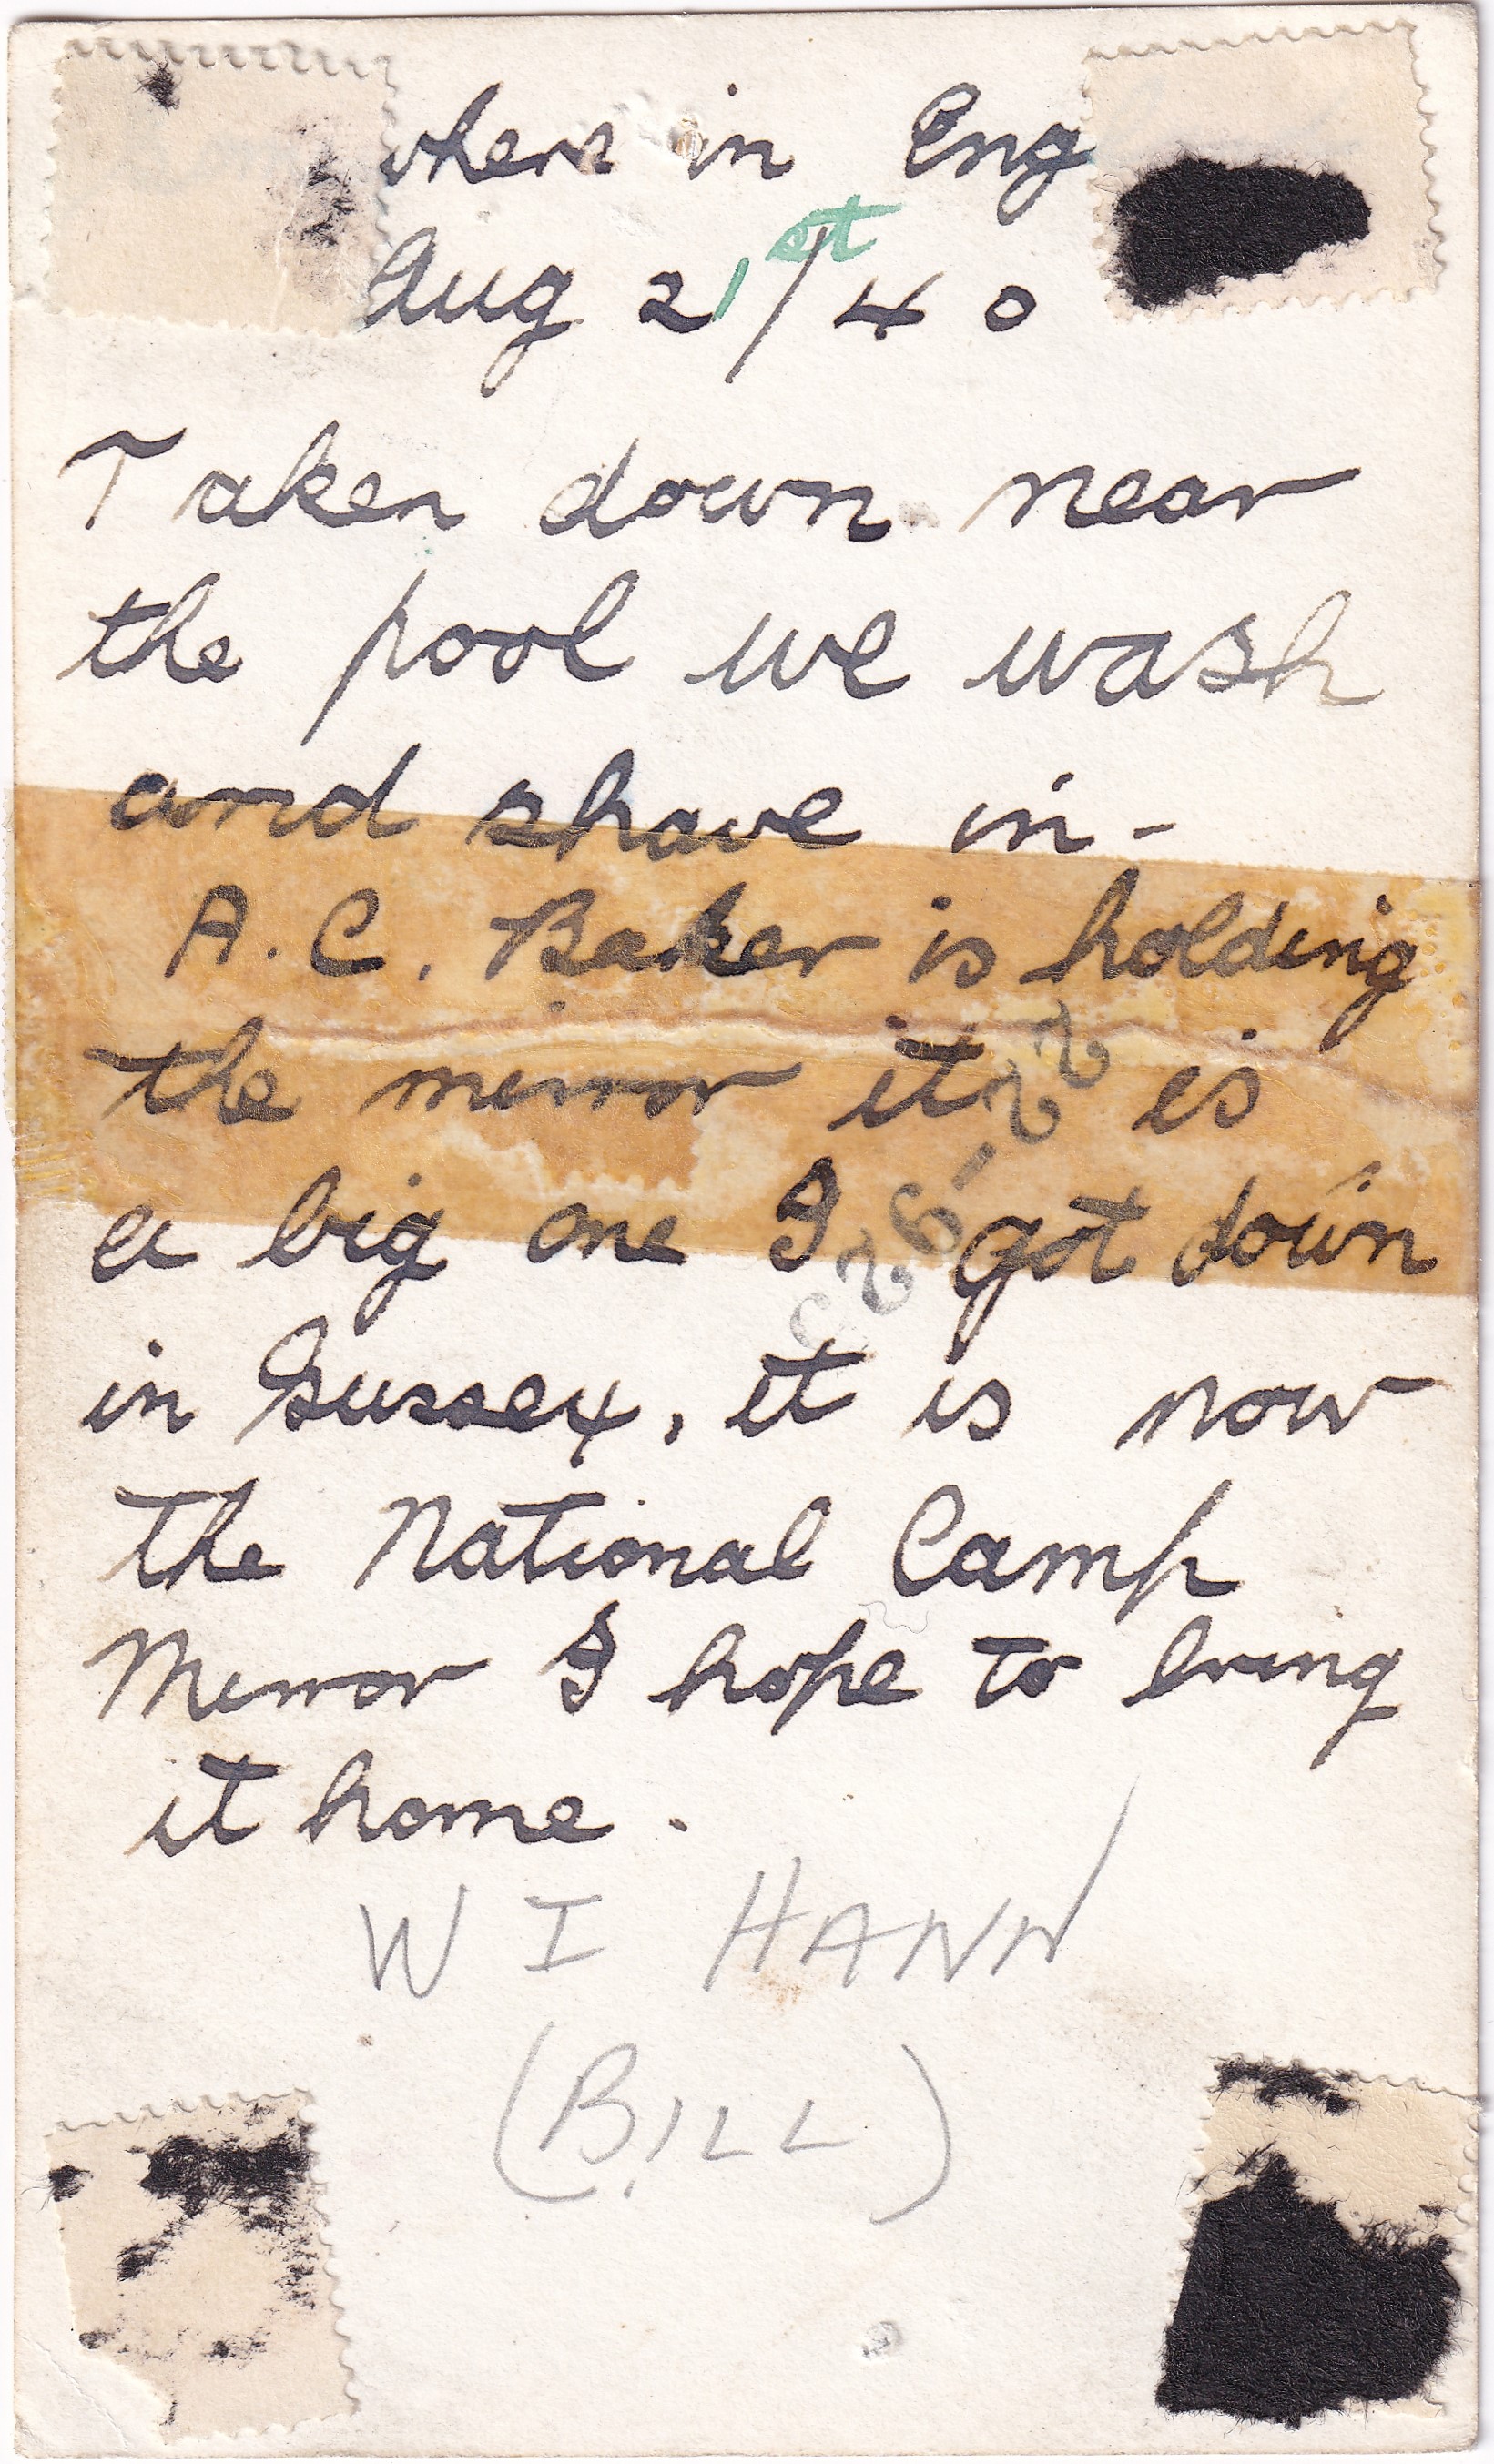 where in Eng
Aug 21st/40
Taken down near
the pool we wash
and shave in-
A. C. Baker is holding
the mirror it is
a big one I got down
in Sussex, it is now
the National Camp
Mirror I hope to bring
it home.
W I HANN
(BILL)